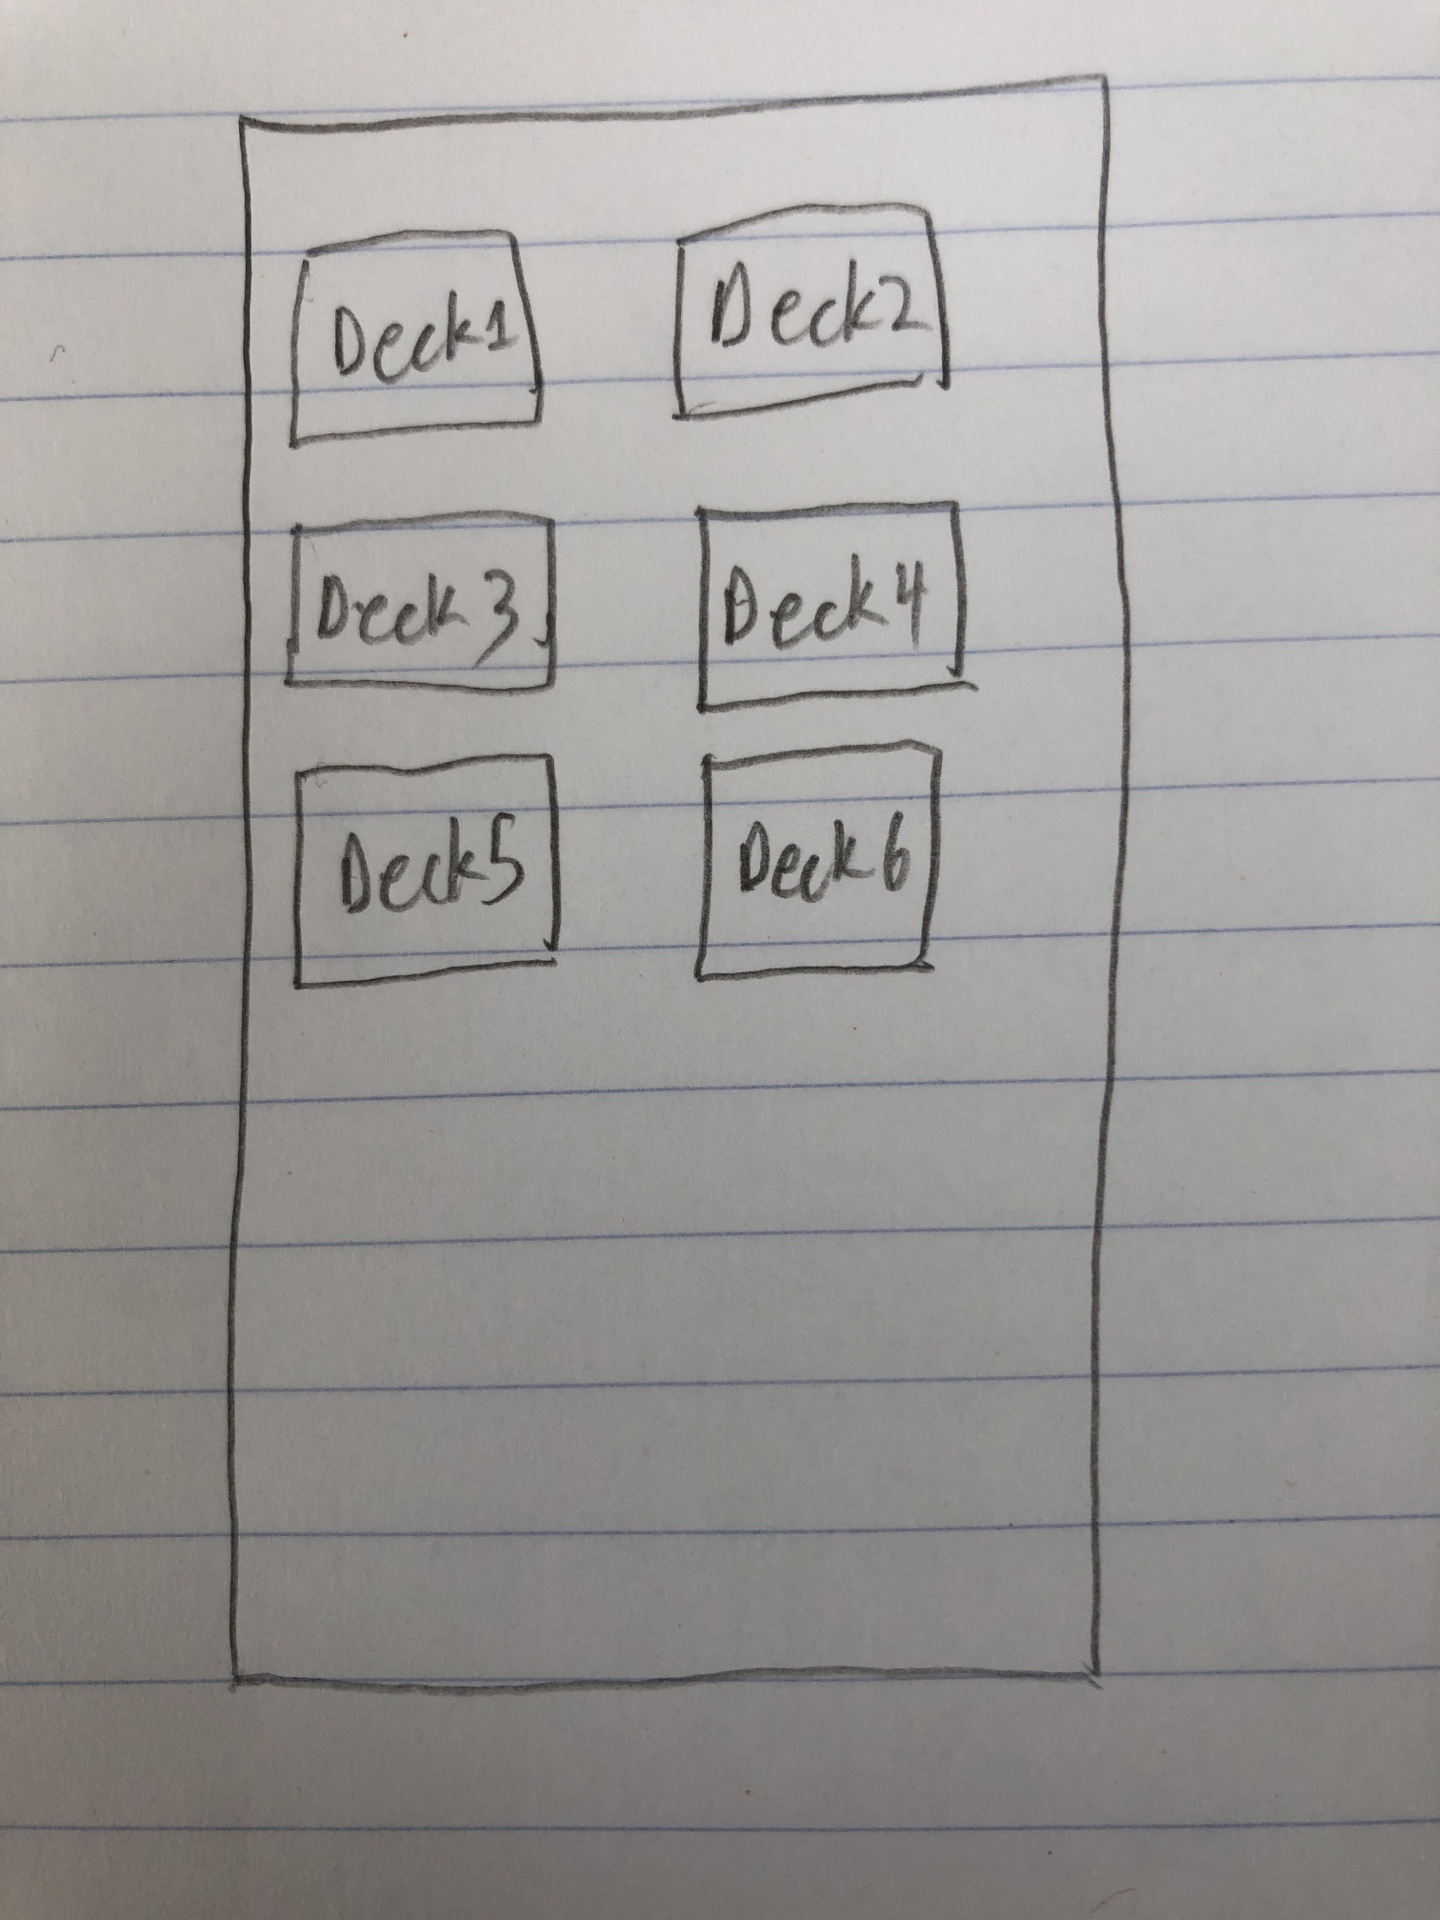 Deck1 Deck2
Deck 3 Deck 4
Deck5 Deck 6